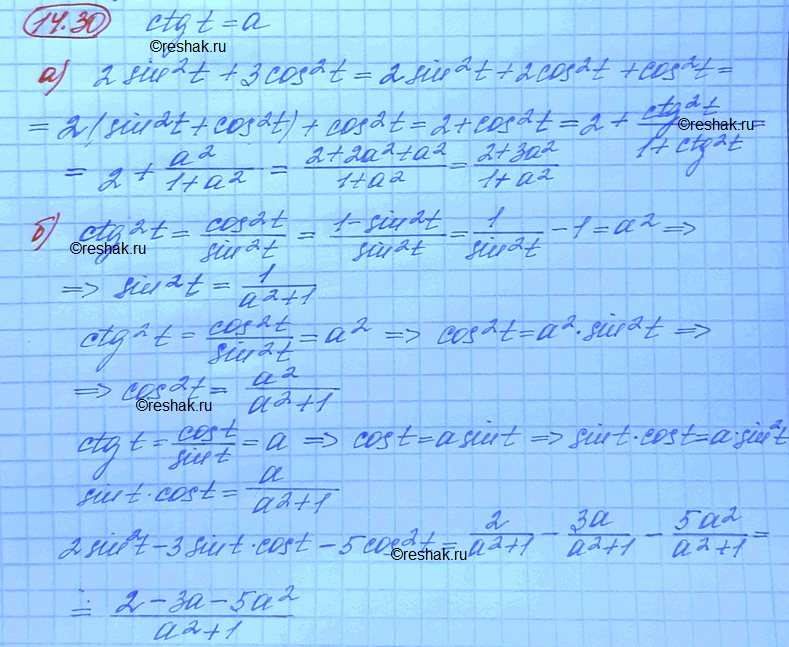 14.30 ctg t = a
©reshak.ru
а) 2 sin²t + 3 cos²t = 2 sin²t + 2cos²t + cos²t =
= 2(sin²t + cos²t) + cos²t = 2 + cos²t = 2 + ctg²t / 1 + ctg²t =
©reshak.ru
= 2 + a² / 1 + a² = 2 + 2a² + a² / 1 + a² = 2 + 3a² / 1 + a²
б) ctg²t = cos²t / sin²t = 1 - sin²t / sin²t = 1 / sin²t - 1 = a² =>
©reshak.ru ©reshak.ru
=> sin²t = 1 / a² + 1
ctg²t = cos²t / sin²t = a² => cos²t = a² · sin²t =>
=> cos²t = a² / a² + 1
©reshak.ru
ctg t = cos t / sin t = a => cos t = a sin t => sin t · cos t = a · sin²t
sin t · cos t = a / a² + 1
2 sin²t - 3 sin t · cos t - 5 cos²t = 2 / a² + 1 - 3a / a² + 1 - 5a² / a² + 1 =
©reshak.ru
= 2 - 3a - 5a² / a² + 1